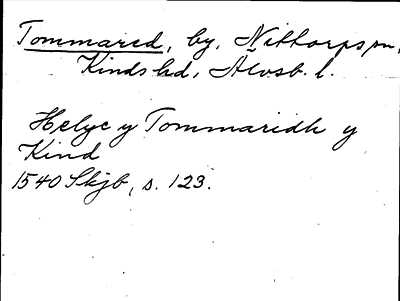 Tommared, by, Nittorps sn,
Kinds hd, Älvsb. l.
Helye y Tommaridh y
Kind
1540 Skjb, s. 123.